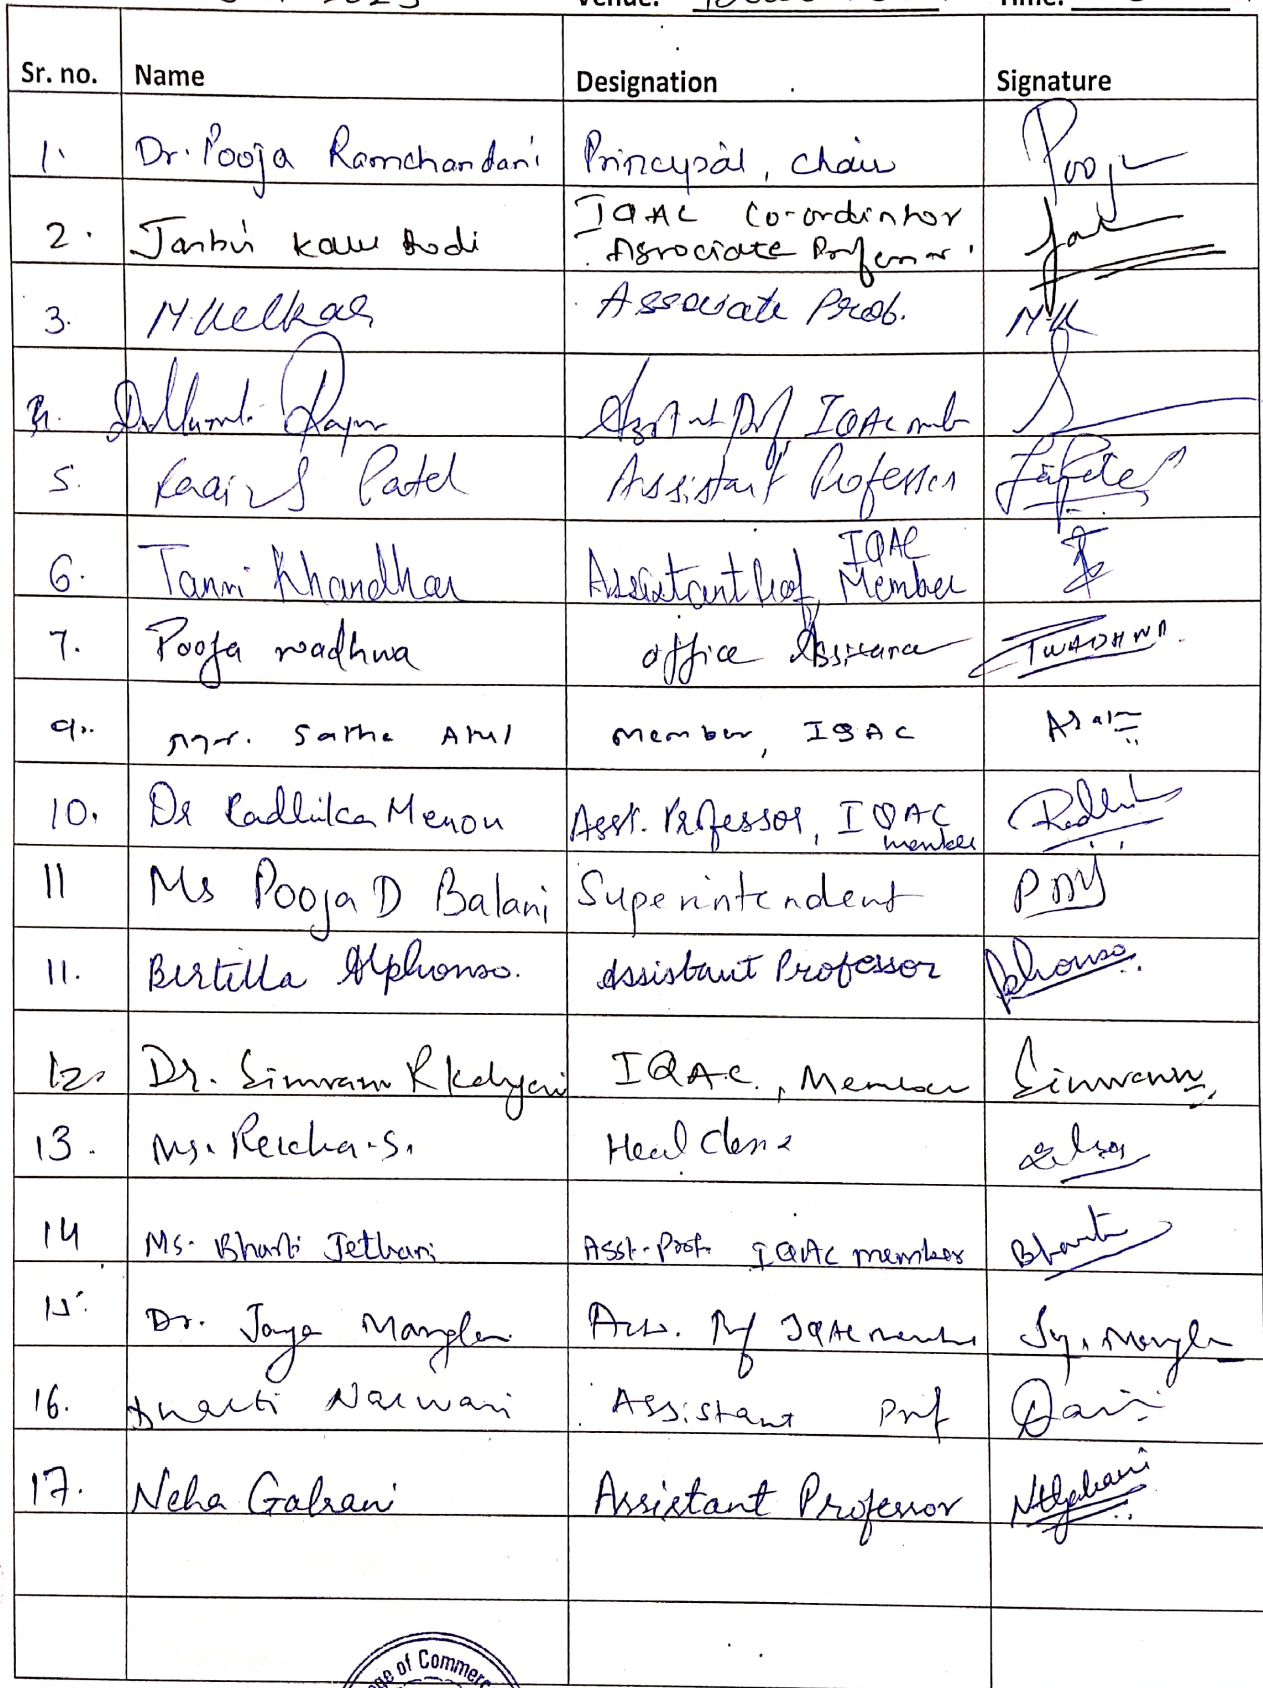 2023 Venue: Time:
Sr. no. Name Designation Signature
1. Dr. Pooja Ramchandani Principal, chair Pooja
2. Jasbir Kaur Sodi IQAC Co-ordinator
Associate Professor.
3. M Kelkar Associate Prof. MK
4. Assistant Prof, IQAC
5. Patel Assistant Professor
6. Tanvi Khandhar Assistant Prof, IQAC Member
7. Pooja wadhwa office Assistance WADHWA
9. Mr. Sathe Atul member, IQAC
10. Dr Radhika Menon Asst. Professor, IQAC
member
11 Ms Pooja D Balani Superintendent
11. Bertilla Alphonso. Assistant Professor Alphonso
12. Dr. Simran R Kalyani IQAC., Member Simran
13. Ms. Rekha.S. Head Clerk
14 Ms. Bharti Jethani Asst-Prof. IQAC member Bharti
15. Dr. Jaya Manglani Ass. Prof IQAC member
16. Bharti Narwani Assistant Prof
17. Neha Galrani Assistant Professor
of Commer